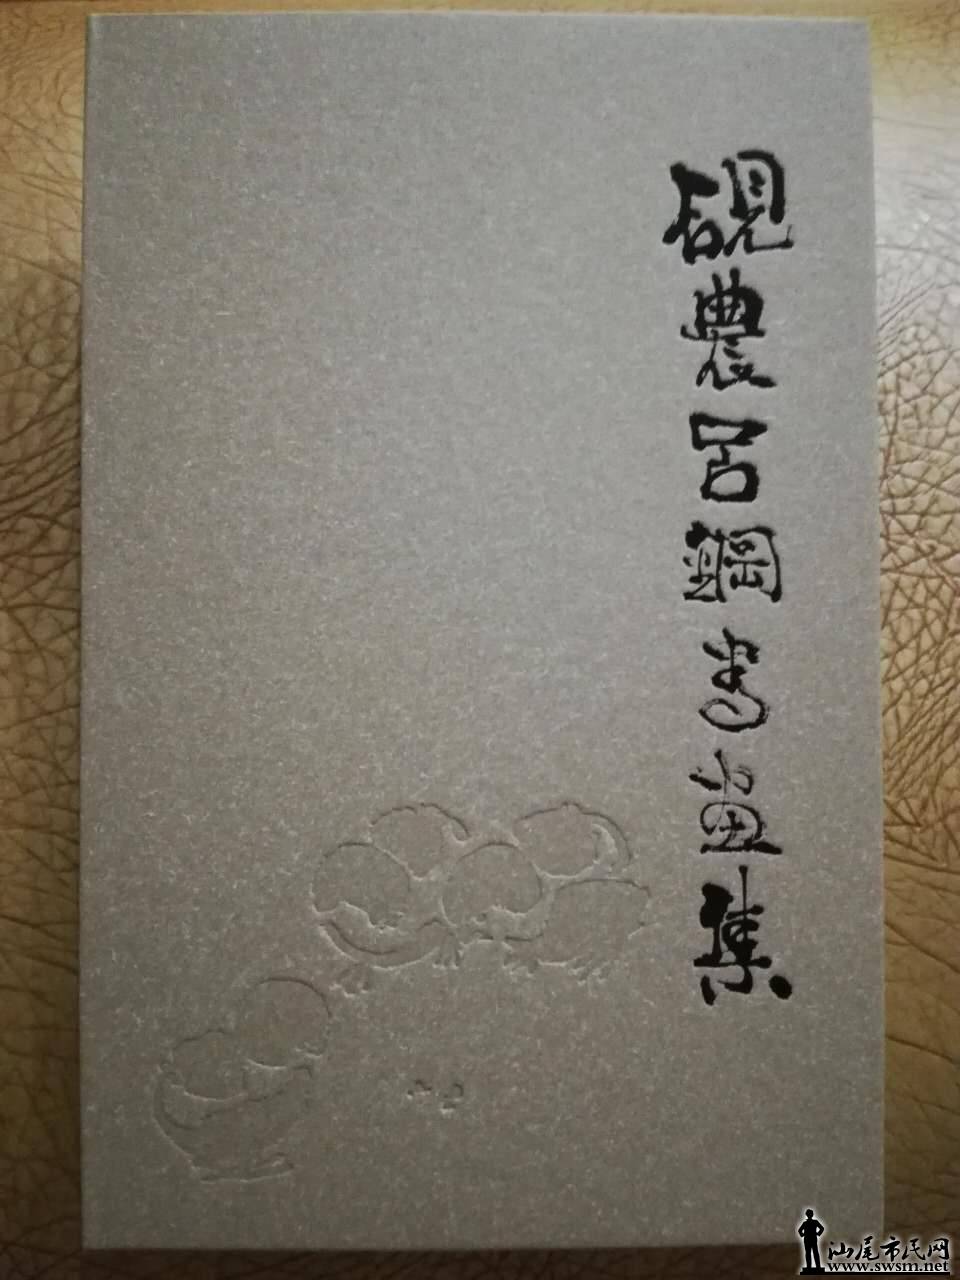 硯農呂鋼書画集
汕尾市民网
www.swsm.net